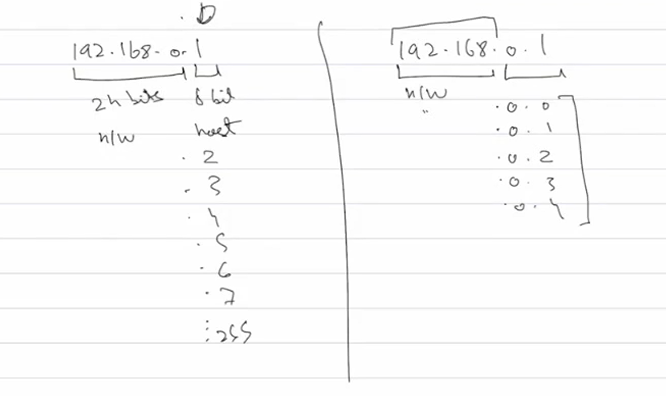 .0
192.168.0.1
24 bits 8 bit
n/w host
.2
.3
.4
.5
.6
.7
255
192.168.0.1
n/w
.0.0
.0.1
.0.2
.0.3
.0.4